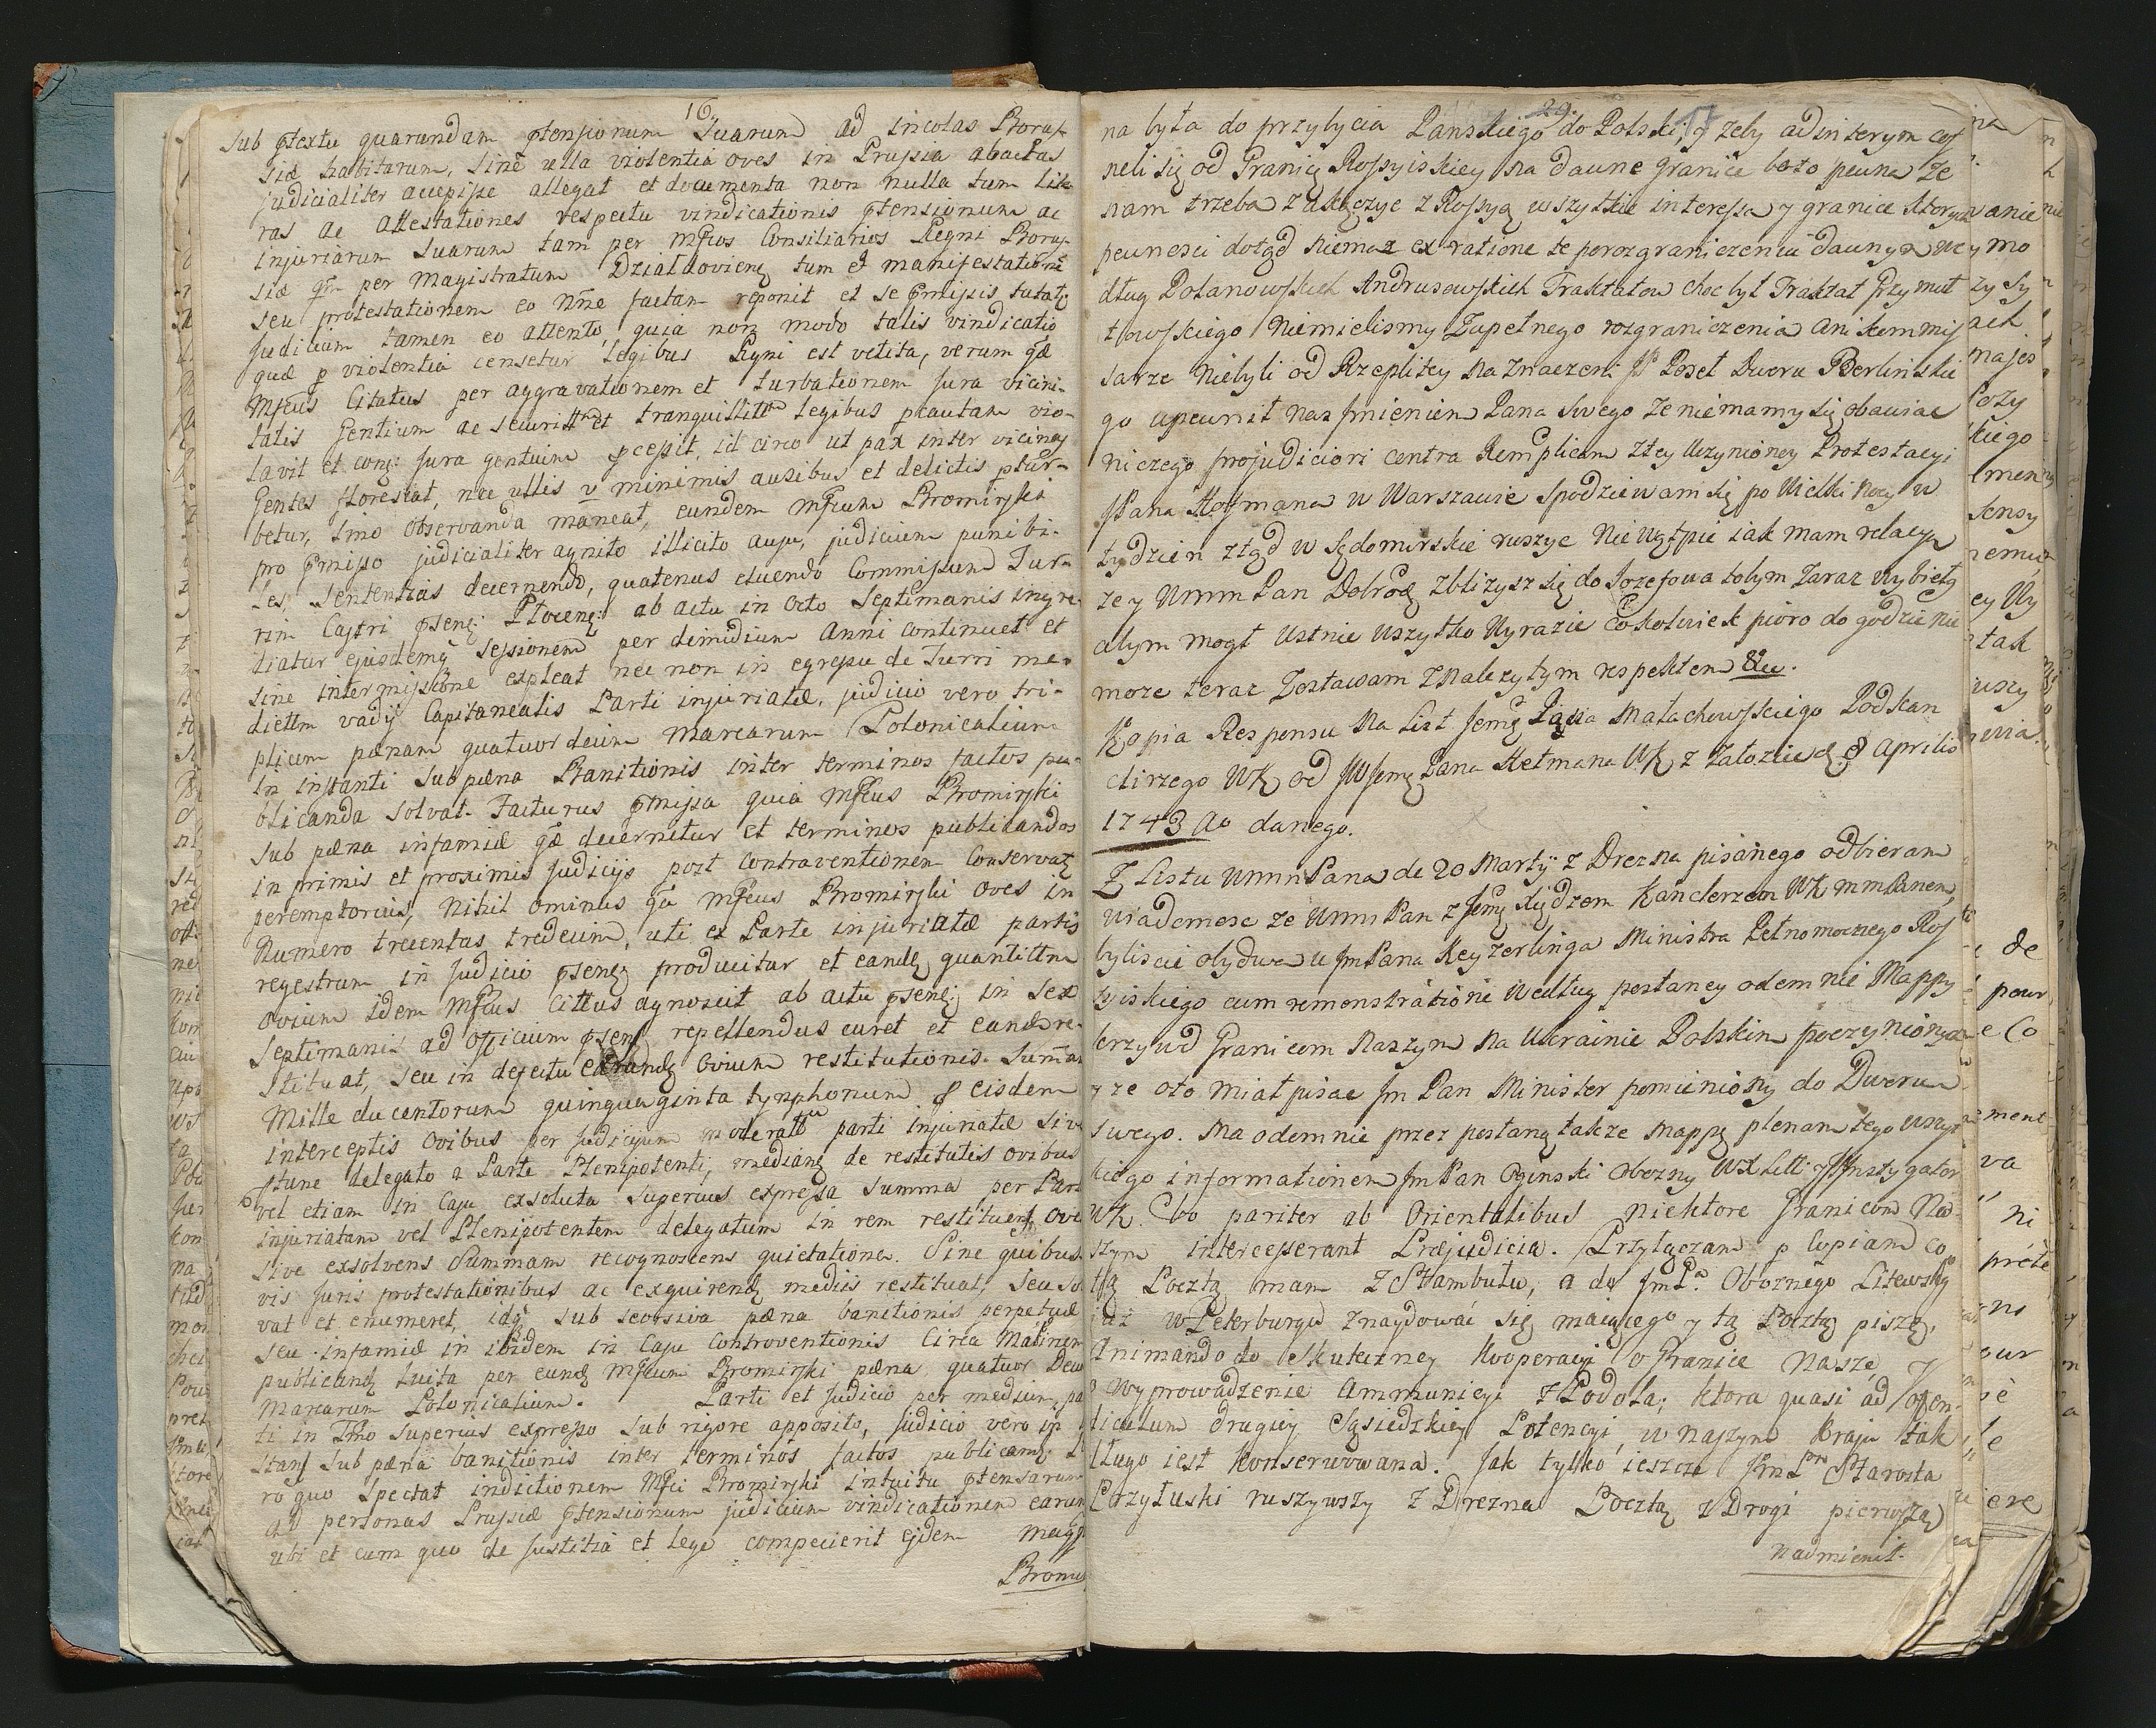 16.
sub ptextu quarundam ptensionum Suarum ad incolas Borus-
siæ habitarum, sine ulla violentia oves in Prussia abactas
judicialiter accepisse allegat et documenta non nulla tum lite-
ras ac attestationes respectu vindicationis ptensionum ac
injuriarum suarum tam per Mfcos Consiliarios Regni Borus-
siæ qm per Magistratum Działdoviens tum et manifestationē
seu protestationem eo nñe factam reponit et se pmissis tutat
Judicium tamen eo attento, quia non modo talis vindicatio
quæ p violentia censetur legibus Regni est vetita, verum
Mfcus Citatus per aggravationem et turbationem jura vicini-
tatis Gentium ac securittm et tranquillittm legibus pcautam vio-
lavit et jura gentium pcessit, id circo ut pax inter vicinas
Gentes florescat, nec ullis v minimis ausibus et delictis ptur-
betur, imo observanda maneat, eundem Mfcum Bromirski
pro pmisso judicialiter agnito illicito ausu, judicium punibi-
les, sententias decernendo, quatenus eluendo Commissum Tur-
rim Castri psens Plocens ab actu in octo Septimanis ingre-
diatur ejusdemq sessionem per dimidium Anni continuet et
sine intermissione expleat nec non in egressu de Turri me-
diettm vadij Capitanealis Parti injuriatæ, judicio vero tri-
plicem pænam quatuordecim marcarum Polonicalium
in instanti sub pæna Banitionis inter terminos factos pu-
blicanda solvat. Facturus pmissa quia Mfcus Bromirski
sub pæna infamiæ decernitur et terminos publicandos
in primis et proximis Judicijs post contraventionem Conservat
peremptorius, Nihil ominus qa Mfcus Bromirski oves in
Numero trecentas tredecim, uti ex Parte injuriatæ partis
regestrum in Judicio psens producitur et eand quantittm
ovium idem Mfcus Cittus agnoscit ab actu psens in sex
septimanis ad officium psens repellendus curet et eand re-
stituat, seu in defectu earund ovium restitutionis. Sum̃am
Mille ducentorum quinquaginta tynphonum p eisdem
interceptis ovibus per Judicium moderatt parti injuriatæ sive
ptunc delegato a Parte Plenipotenti, mediante de restitutis ovibus
vel etiam in Casu exsoluta superius expressa summa per Part
injuriatam vel Plenipotentem delegatum in rem restituent ove
sive exsolvens Summam recognoscens quietatione. Sine quibus
vis juris protestationibus ac exquirend mediis restituat, seu sol
vat et enumeret, idq sub seorsiva pæna banitionis perpetuæ
seu infamiæ in ibidem in Casu Controventionis Circa
publicand luita per eund Mfcum Bromirski pæna quatuor Dec
Marcarum Polonicalium. Parti et Judicio per medium pa
ti in Tm̃o superius expresso sub rigore apposito, judicio vero in
stans sub pæna banitionis inter terminos factos publicam
ro quo spectat indictionem Mfci Bromirski intuitu ptensarum
ad personas Prussiæ ptensionum judicium vindicationem earum
ubi et cum quo de Justitia et lege compecierit ejdem Magf
Bromi
29. 17
na była do przybycia Panskiego do Polski, y żeby ad interym cof
neli się od Granicy Rossyiskiey na dawne granice bo to pewna że
nam trzeba zakączyc z Rossyą wszytkie interessa y granice ktorych
pewnosci dotąd niemaz ex ratione że porozgraniczeniu dawnym we
dług Polanowskich Andrusowskich Traktatow choc był Traktat Grzymuł
towskiego niemielismy zupełnego rozgraniczenia ani kommis
sarze niebyli od Rzeplitey naznaczeni JP Poseł Dworu Berlinskie
go upewnił nas imieniem Pana swego że niemamy się obawiac
niczego projudiciori contra Remplicam ztey uczynioney Protestacyi
JPana Hofmana w Warszawie spodziewam się po Wielki Nocy w
tydzien ztąd w Sędomirskie ruszyc nie wątpie iak mam relacyą
że y WmmPan Dobrod zbliżysz się do Jozefowa tobym zaraz wybiegł
abym mogł ustnie wszytko wyrazic cokolwiek pioro do godzie nie
moze teraz Zostawam z należytym respektem &c.
Kopia Responsu na List Jemci Pana Małachowskiego Podkan
clirzego WK od JWJemci Pana Hetmana WK z Załoziec d 8 Aprilis
1743 Ao danego.
Z Listu WmmPana de 20 Martij z Drezna pisanego odbieram
wiadomosc że WmmPan z Jemci Xiędzem Kanclerzem WK mmPanem
byliscie obydwa u JmPana Keyzerlinga Ministra Pełnomocnego Ros
syiskiego cum remonstratione według posłaney odemnie Mappy
krzywd Granicom naszym na Ukrainie Polskim poczynionych
y że oto miał pisac Jm Pan Minister pomieniony do Dworu
swego. Ma odemnie przez posłaną takze mappę plenam tego wszyt
kiego informationem JmPan Oginski Obozny WXLitt y JInstygator
WK. bo pariter ab Orientalibus niektore Granicom Na-
szym intercesserant Præjudicia. Przyłączam p Copiam co
tą Pocztą mam z Stambułu, a do JmPa. Oboznego Litewsky
iuż w Peterburgu znaydować się maiącego y tą Pocztą piszę,
Animando do skuteczney kooperacyi o Granice Nasze, y
o wyprowadzenie Ammunicyi z Podola, ktora quasi ad osten-
ticulum drugiey Sąsiedzkiey Potencyi, w naszym kraju tak
długo iest konserwowana. Jak tylko ieszcze Jm Pn Starosta
Korzytuski ruszywszy z Drezna Pocztą z Drogi pierwszą
nadmienił.